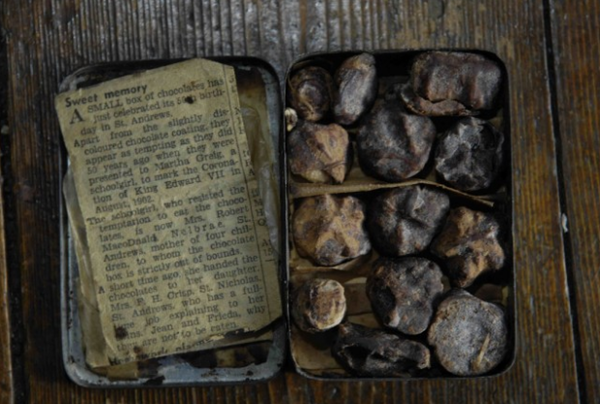 Sweet memory
A SMALL box of chocolates has
just celebrated its 50th birth-
day in St. Andrews.
Apart from the slightly dis-
coloured chocolate coating, they
appear as tempting as they did
50 years ago when they were
presented to Martha Greig, a
schoolgirl, to mark the Corona-
tion of King Edward VII. in
August, 1902.
The schoolgirl, who resisted the
temptation to eat the choco-
lates, is now Mrs. Robert
MacDonald Neibrae, St.
Andrews, mother of four chil-
dren, to whom the chocolate
box is strictly out of bounds.
A short time ago she handed the
chocolates to her daughter,
Mrs. F. H. Crisp, St. Nicholas,
St. Andrews, who has a full-
time job explaining to her
Jean and Frieda, why
they are not to be eaten.